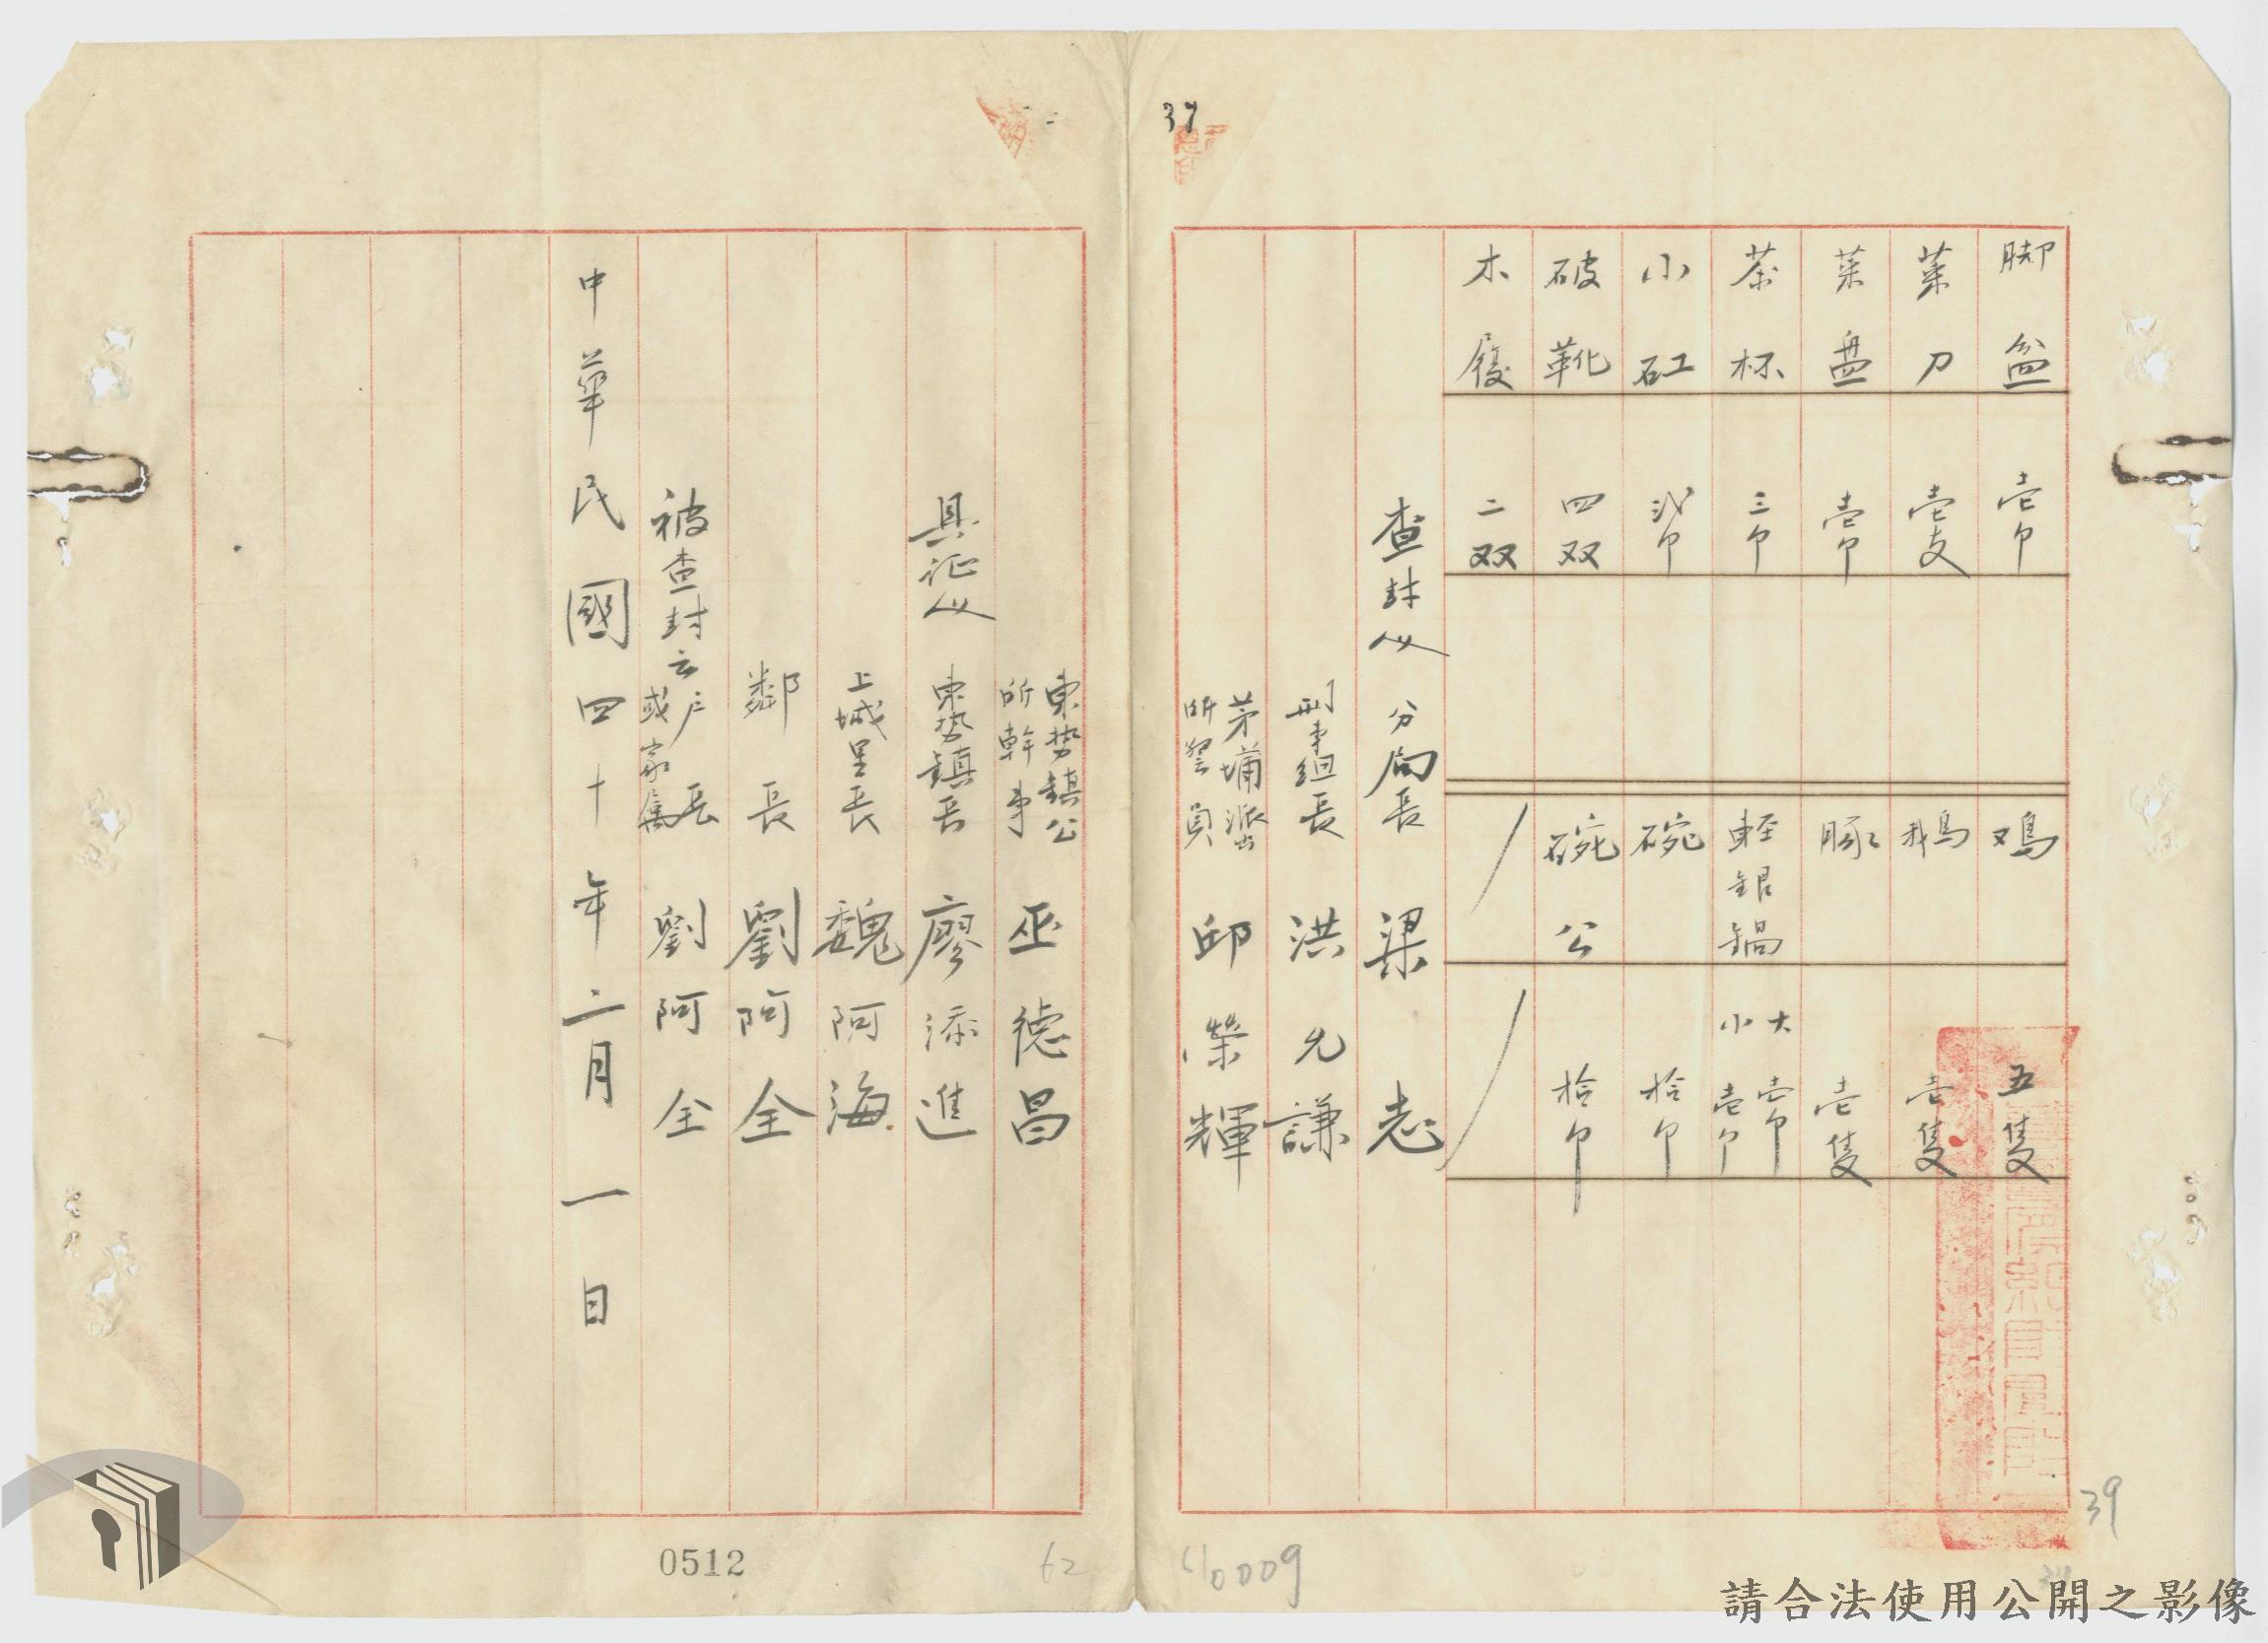 37
脚盆 壱个
菜刀 壱支
菜盘 壱个
茶杯 三个
小矼 弍个
破靴 四双
木屐 二双
鸡 五隻
鵝 壱隻
豚 壱隻
軽銀鍋 大壱个 小壱个
碗 拾个
碗公 拾个
查封人 分局長 梁志
刑事組長 洪允謙
茅埔派出所警員 邱榮輝
東势鎮公所幹事 巫德昌
具証人 東势鎮長 廖添進
上城里長 魏阿海
鄰長 劉阿全
被查封之户長或家属 劉阿全
中華民國四十年二月一日
0512
62
40009
39
請合法使用公開之影像